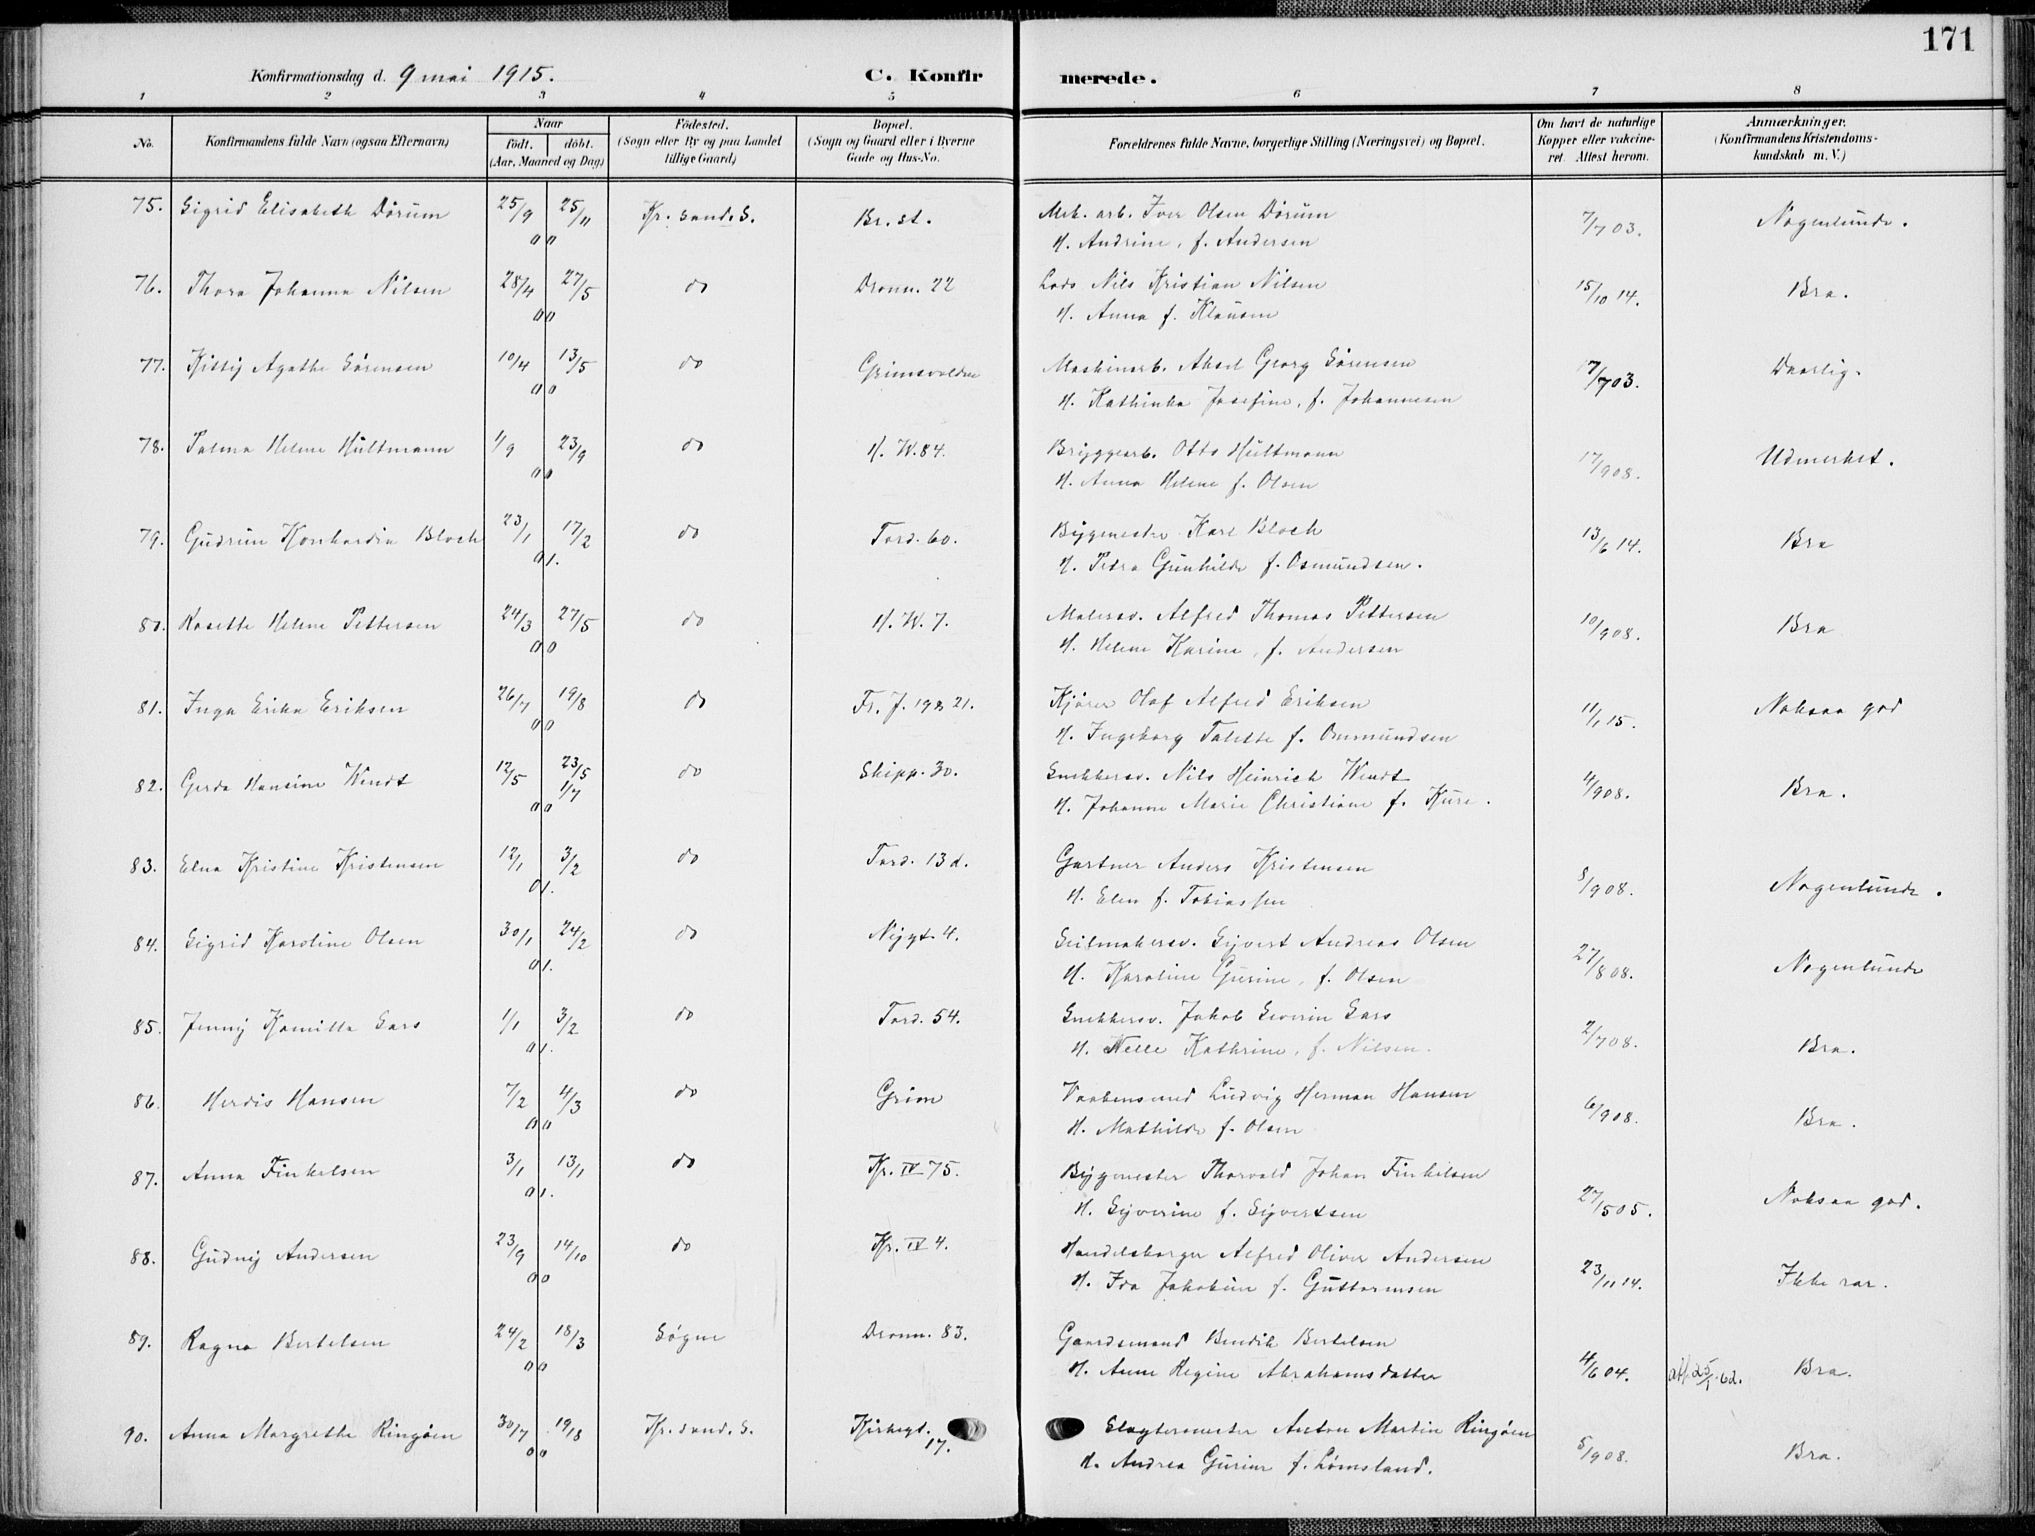 171
Konfirmationsdag d. 9 mai 1915. C. Konfirmerede.
1 2 3 4 5 6 7 8
No. Konfirmandens fulde Navn (ogsaa Efternavn) Naar født. døbt. (Aar, Maaned og Dag) Fødested. (Sogn eller By og paa Landet tillige Gaard) Bopæl. (Sogn og Gaard eller i Byerne Gade og Hus-No. Forældrenes fulde Navne, borgerlige Stilling (Næringsvei) og Bopæl. Om havt de naturlige Kopper eller vakcineret. Attest herom. Anmærkninger. (Konfirmandens Kristendomskundskab m. V.)
75. Sigrid Elisabeth Dörum 25/9 25/11 00 Kr. sand. S. Br. st. Mek. arb. Iver Olsen Dörum 7/7 03. Nogenlunde.
H. Andrine, f. Andersen
76. Thora Johanna Nilsen 28/4 27/5 00 do Dronn. 22 Lods Nils Kristian Nilsen 15/10 14. Bra.
H. Anna f. Klausen
77. Kitty Agathe Sörensen 10/4 13/5 00 do Grimsvolden Maskinarb. Aksel Georg Sörensen 17/7 03. Daarlig.
H. Kathinka Josefine, f. Johannesen
78. Palma Helene Hultmann 1/9 23/9 00 do H. W. 84. Bryggearb. Otto Hultmann 17/9 08. Udmerket.
H. Anna Helene f. Olsen
79. Gudrun Bloch 23/1 17/2 01. do Tord. 60. Bygmester Karl Bloch 13/6 14. Bra
H. Petra Gunhilde f. Osmundsen.
80. Rosette Helene Pettersen 24/3 27/5 00 do H. W. 7. Malersv. Alfred Thomas Pettersen 10/9 08. Bra
H. Helene Karine, f. Andersen
81. Inga Erika Eriksen 26/7 19/8 00 do Fr. J. 19 21. Kjörer Olaf Alfred Eriksen 11/1 15. Noksaa god
H. Ingeborg Talette f. Osmundsen
82. Gerda Hansine Wendt 12/5 23/5 1/7 00 do Skipp. 30. Snekkersv. Nils Heinrich Wendt 4/9 08. Bra.
H. Johanne Marie Christiane f. Kure.
83. Elna Kristine Kristensen 12/1 3/2 01. do Tord. 13 d. Gartner Anders Kristensen 8/9 08. Nogenlunde.
H. Elen f. Tobiassen
84. Sigrid Karoline Olsen 30/1 24/2 01. do Nygt. 4. Seilmakersv. Syvert Andreas Olsen 27/8 08. Nogenlunde
H. Karoline Gurine, f. Olsen
85. Jenny Kamilla Sars 1/1 3/2 01. do Tord. 54. Snekkersv. Jakob Severin Sars 2/7 08. Bra.
H. Nelle Kathrine, f. Nilsen.
86. Herdis Hansen 7/2 4/3 00 do Grim Ludvig Herman Hansen 6/9 08. Bra.
H. Mathilde f. Olsen
87. Anna Finkelsen 3/1 13/1 01. do Kr. IV 75. Bygmester Thorvald Johan Finkelsen 27/5 05. Noksaa god.
H. Syverine f. Syvertsen
88. Gudny Andersen 23/9 14/10 00 do Kr. IV 4. Handelsborger Alfred Oliver Andersen 23/11 14. Ikke rar.
H. Ida Jakobine f. Guttormsen
89. Ragna Bertelsen 24/2 18/3 00 Søgne Dronn. 83. Gaardsmand Bendik Bertelsen 4/6 04. att. 25/1 62. Bra.
H. Anne Regine Abrahamsdatter
90. Anna Margrethe Ringöen 30/7 19/8 00 Kr. sand. S. Kirkegt. 17. Slagtermester Anton Martin Ringöen 5/9 08. Bra.
H. Andrea Gurine f. Lømsland.